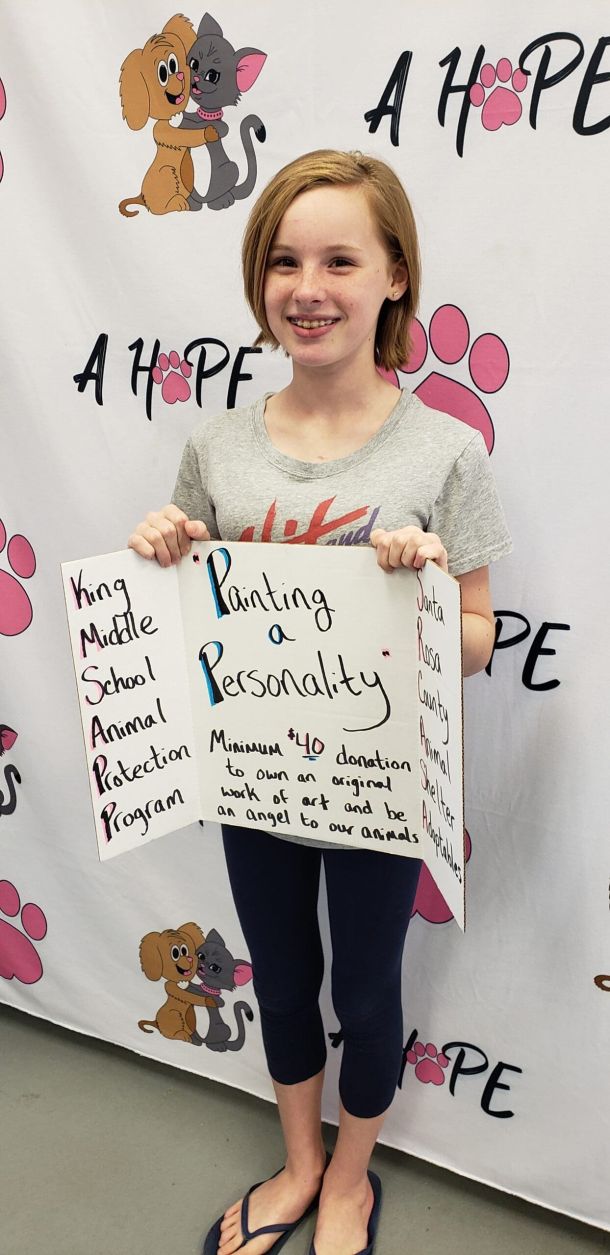 A HOPE
A HOPE
and
King
Middle
School
Animal
Protection
Program
"Painting
a
Personality"
Minimum $40 donation
to own an original
work of art and be
an angel to our animals
Santa
Rosa
County
Animal
Shelter
Adoptables
PE
A HOPE